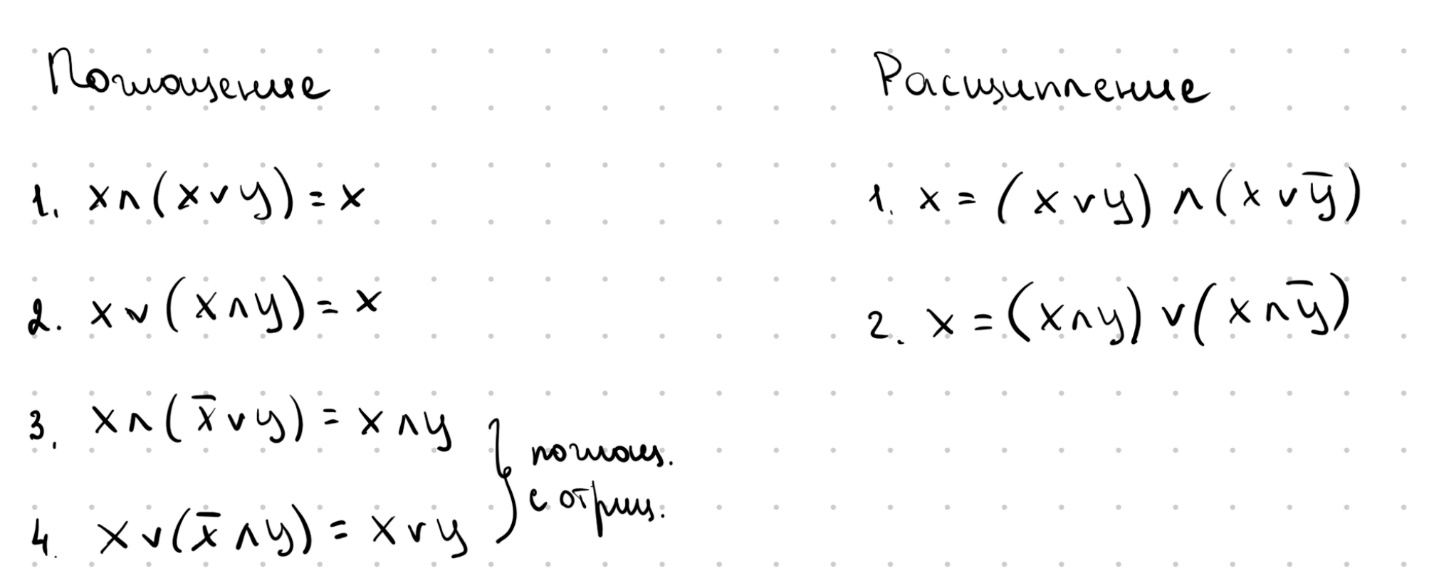 Поглощение
1. x∧(x∨y)=x
2. x∨(x∧y)=x
3. x∧(x̅∨y)=x∧y
4. x∨(x̅∧y)=x∨y
поглощ.
с отриц.
Расщипление
1. x=(x∨y)∧(x∨y̅)
2. x=(x∧y)∨(x∧y̅)